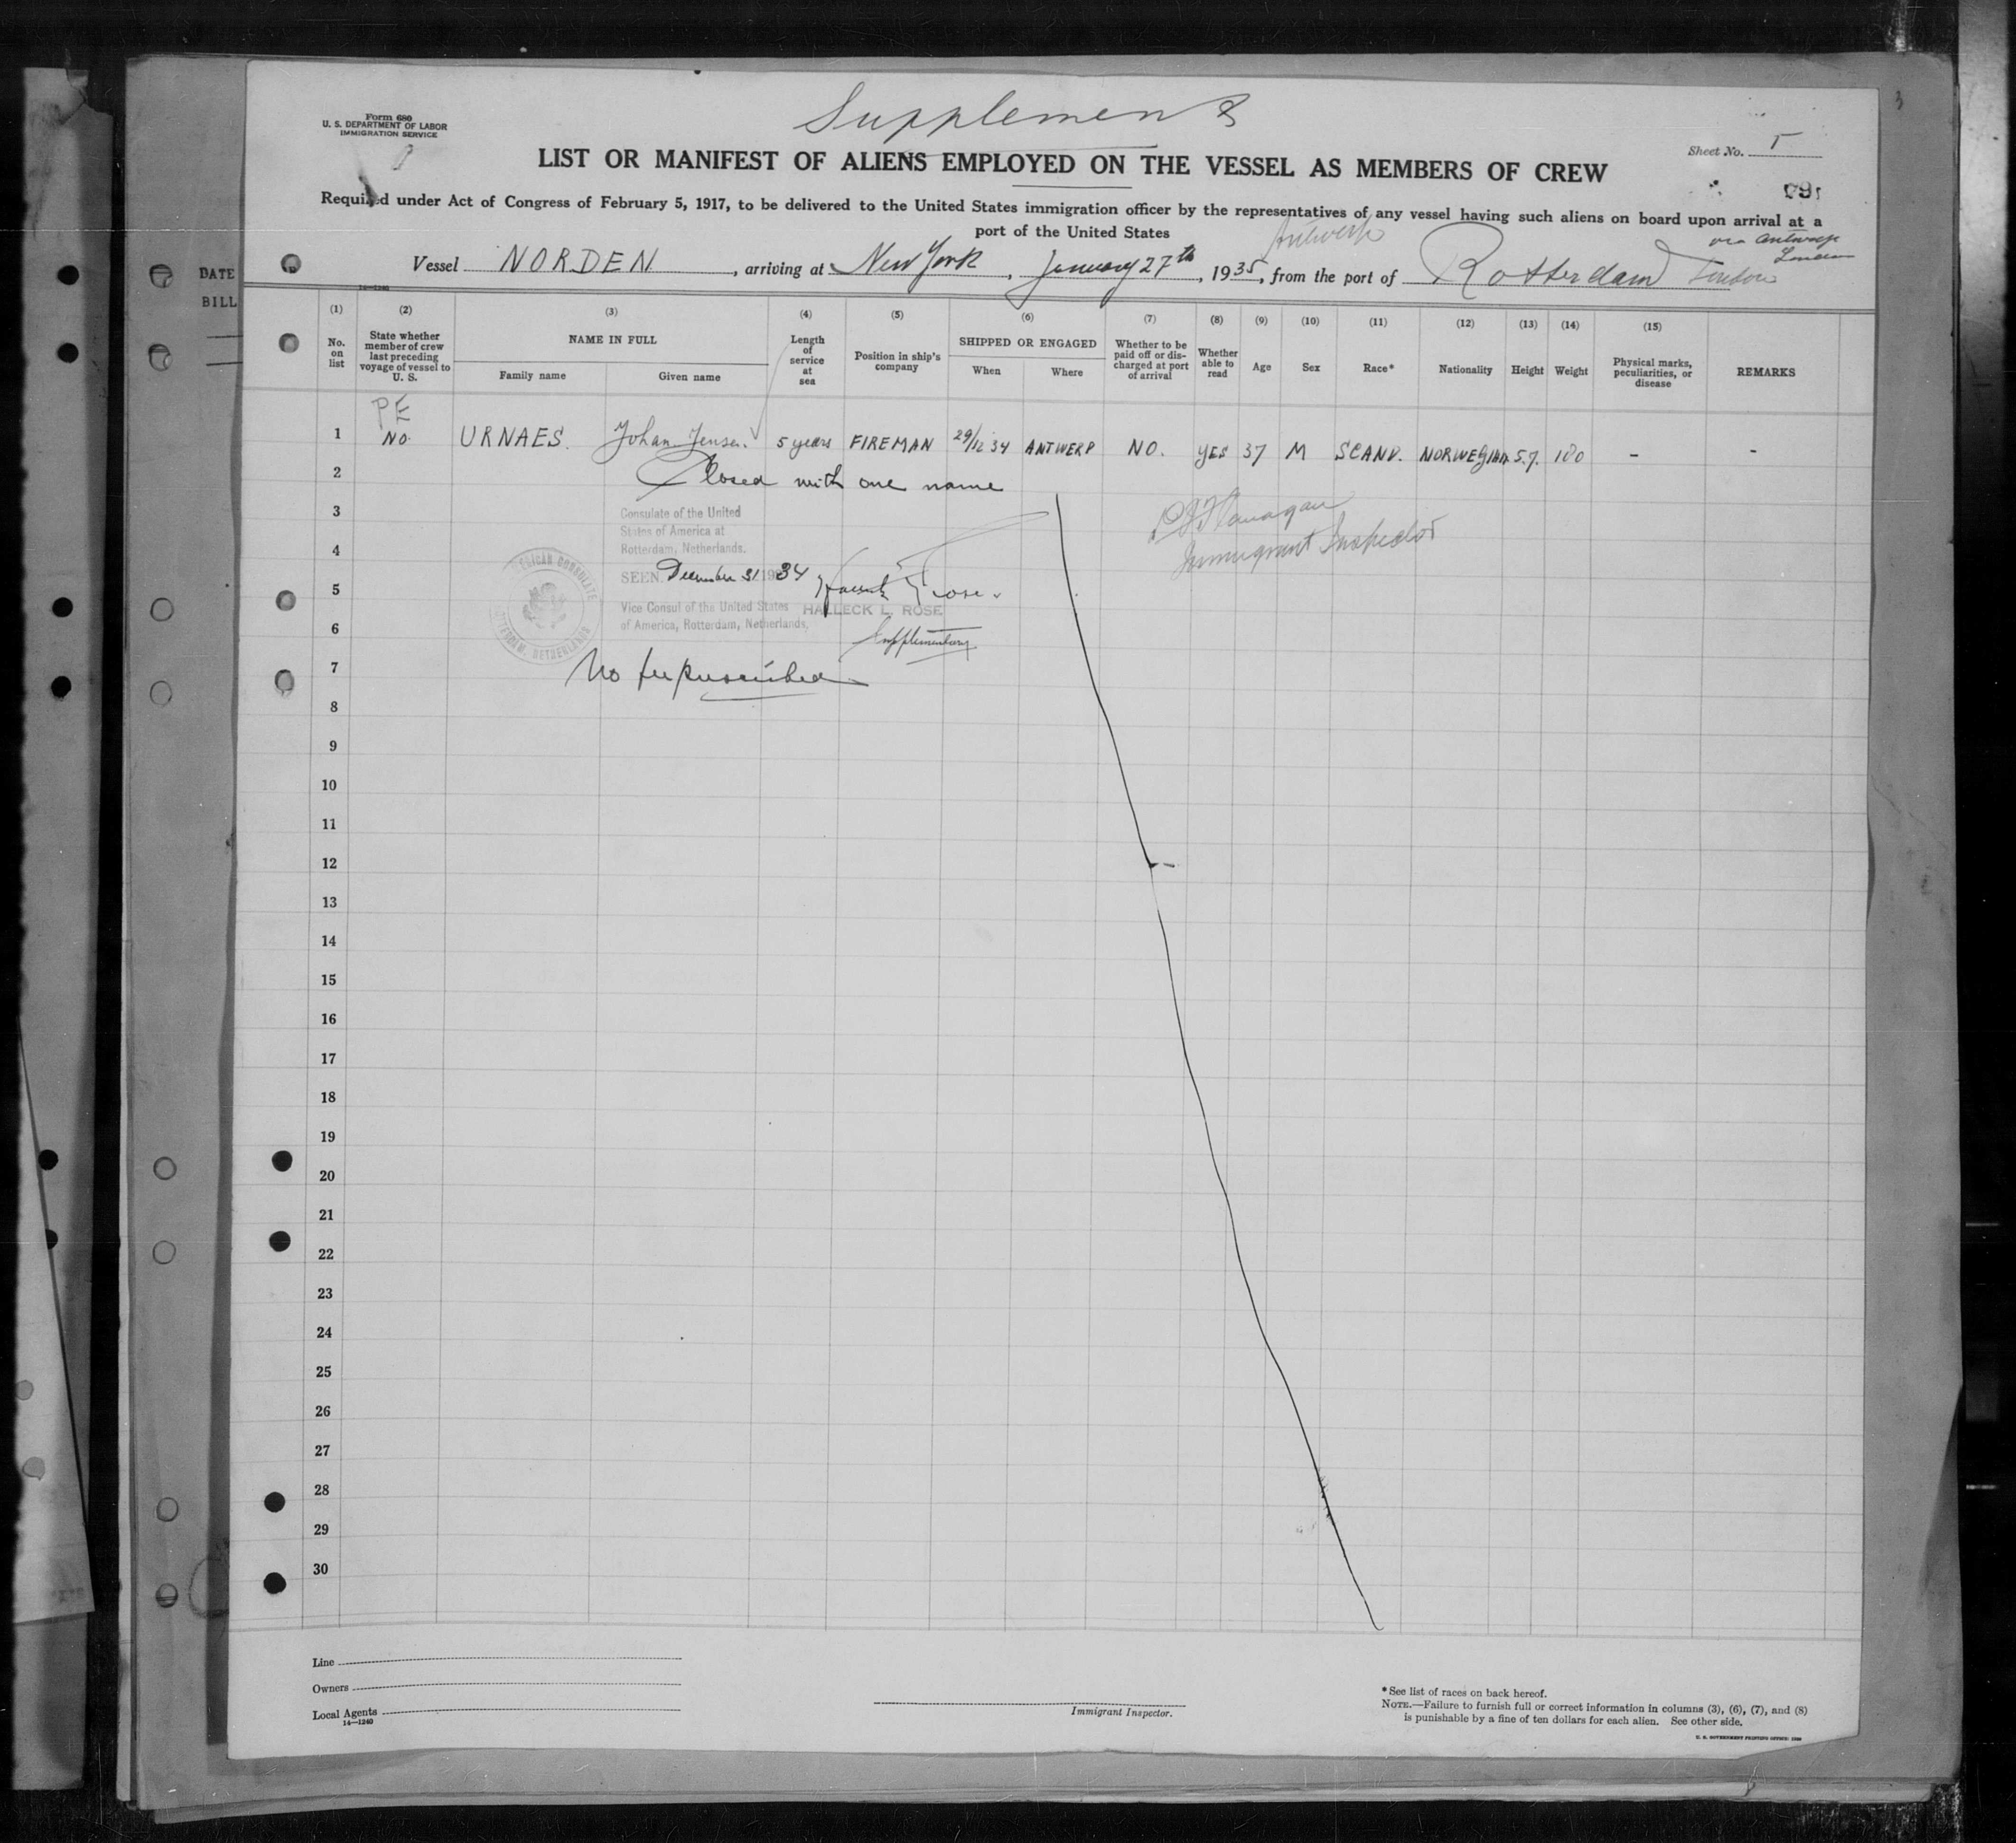 Supplement
Form 680
U. S. DEPARTMENT OF LABOR
IMMIGRATION SERVICE
LIST OR MANIFEST OF ALIENS EMPLOYED ON THE VESSEL AS MEMBERS OF CREW
Sheet No. 5
Required under Act of Congress of February 5, 1917, to be delivered to the United States immigration officer by the representatives of any vessel having such aliens on board upon arrival at a
port of the United States
Antwerp
via Antwerp
London
Vessel NORDEN, arriving at New York, January 27th, 1935, from the port of Rotterdam London
DATE
BILL
(1) (2) (3) (4) (5) (6) (7) (8) (9) (10) (11) (12) (13) (14) (15)
No. on list
State whether member of crew last preceding voyage of vessel to U. S.
NAME IN FULL
Family name
Given name
Length of service at sea
Position in ship's company
SHIPPED OR ENGAGED
When
Where
Whether to be paid off or discharged at port of arrival
Whether able to read
Age
Sex
Race*
Nationality
Height
Weight
Physical marks, peculiarities, or disease
REMARKS
PE
1 NO. URNAES. Johan Jensen. 5 years FIREMAN 29/12 34 ANTWERP NO. YES 37 M SCAND. NORWEGIAN 5.7. 180 - -
2 Closed with one name
3 Consulate of the United
States of America at
4 Rotterdam, Netherlands.
SEEN December 31 1934
5
Vice Consul of the United States HALLECK L. ROSE
6 of America, Rotterdam, Netherlands,
Supplementary
AMERICAN CONSULATE
ROTTERDAM, NETHERLANDS
Immigrant Inspector
7 No fee prescribed
8
9
10
11
12
13
14
15
16
17
18
19
20
21
22
23
24
25
26
27
28
29
30
Line
Owners
Local Agents
14—1240
Immigrant Inspector.
*See list of races on back hereof.
NOTE.—Failure to furnish full or correct information in columns (3), (6), (7), and (8)
is punishable by a fine of ten dollars for each alien. See other side.
U. S. GOVERNMENT PRINTING OFFICE: